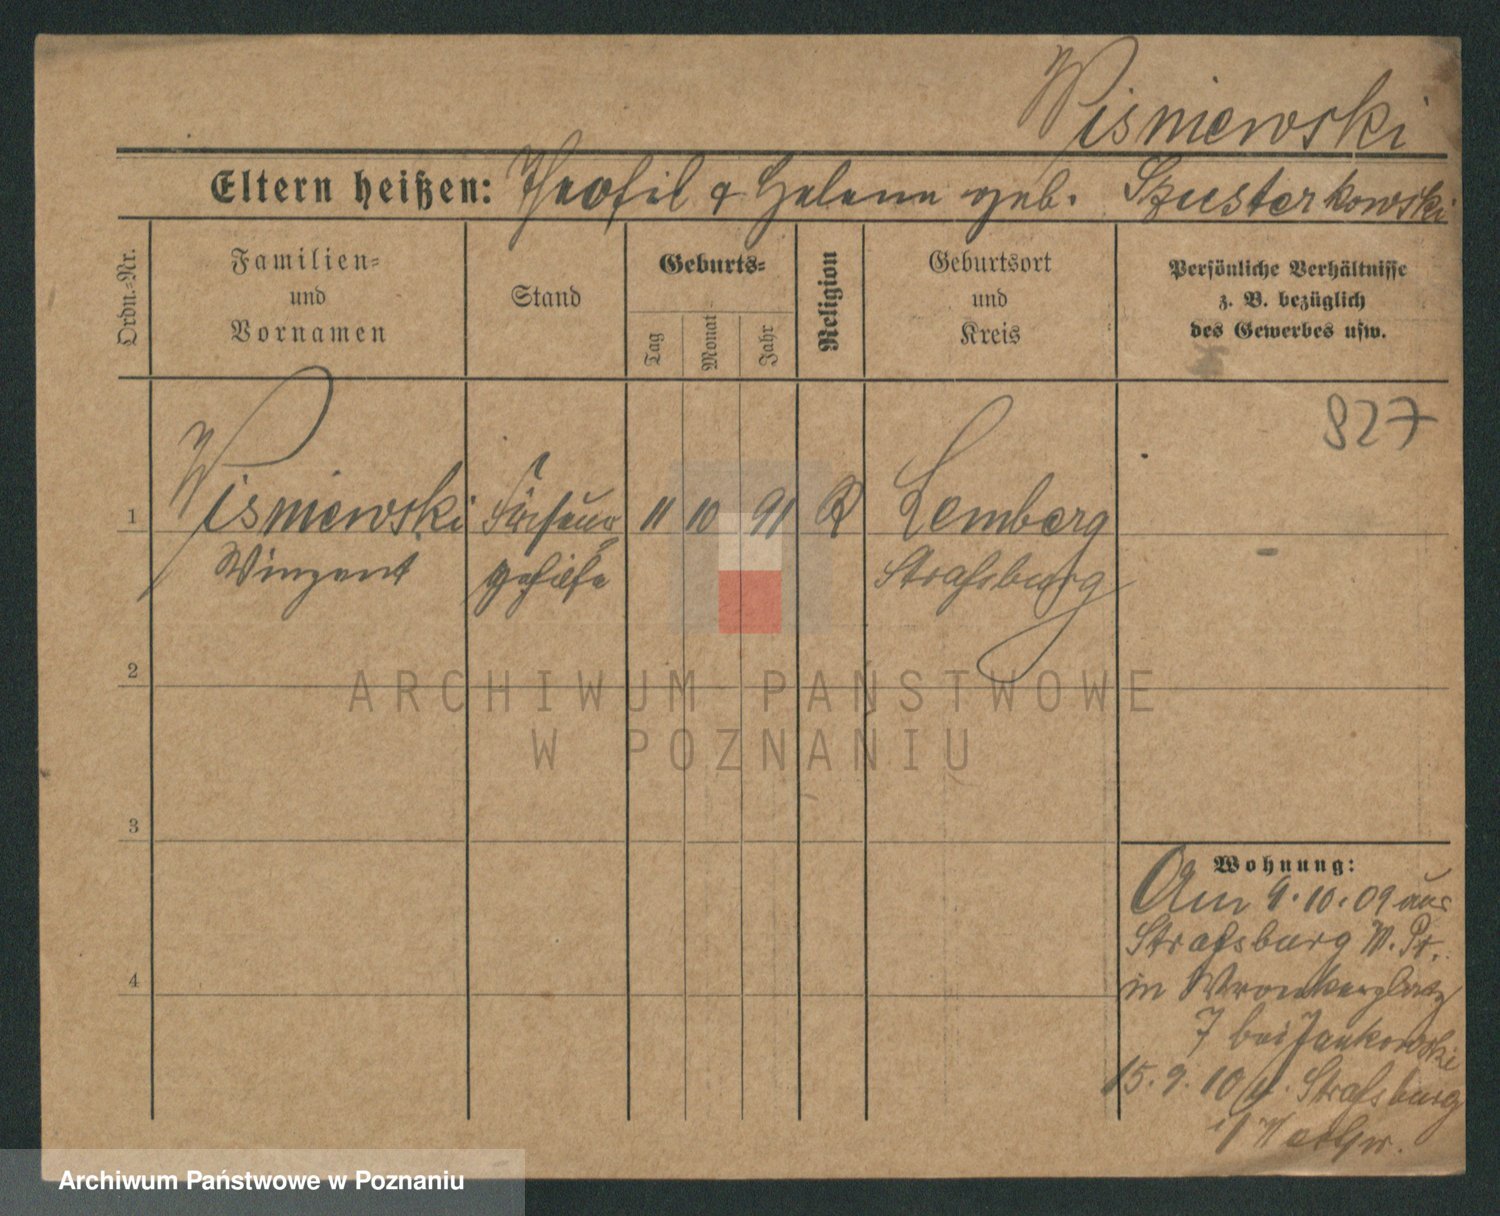 Wisniewski
Eltern heißen: Theofil & Helene geb. Szusterkowski
Ordn.-Nr.
Familien-
und
Vornamen
Stand
Geburts-
Tag
Monat
Jahr
Religion
Geburtsort
und
Kreis
Persönliche Verhältnisse
z. B. bezüglich
des Gewerbes usw.
827
1
Wisniewski
Winzent
Friseur
gehilfe
11
10
91
R
Lemberg
Strafsburg
2
3
4
ARCHIWUM PAŃSTWOWE
W POZNANIU
Wohnung:
Am 9.10.09 aus
Strafsburg W. Pr.
in Wronkerplatz
7 bei Jankowski
15.9.10 n. Strafsburg
Archiwum Państwowe w Poznaniu